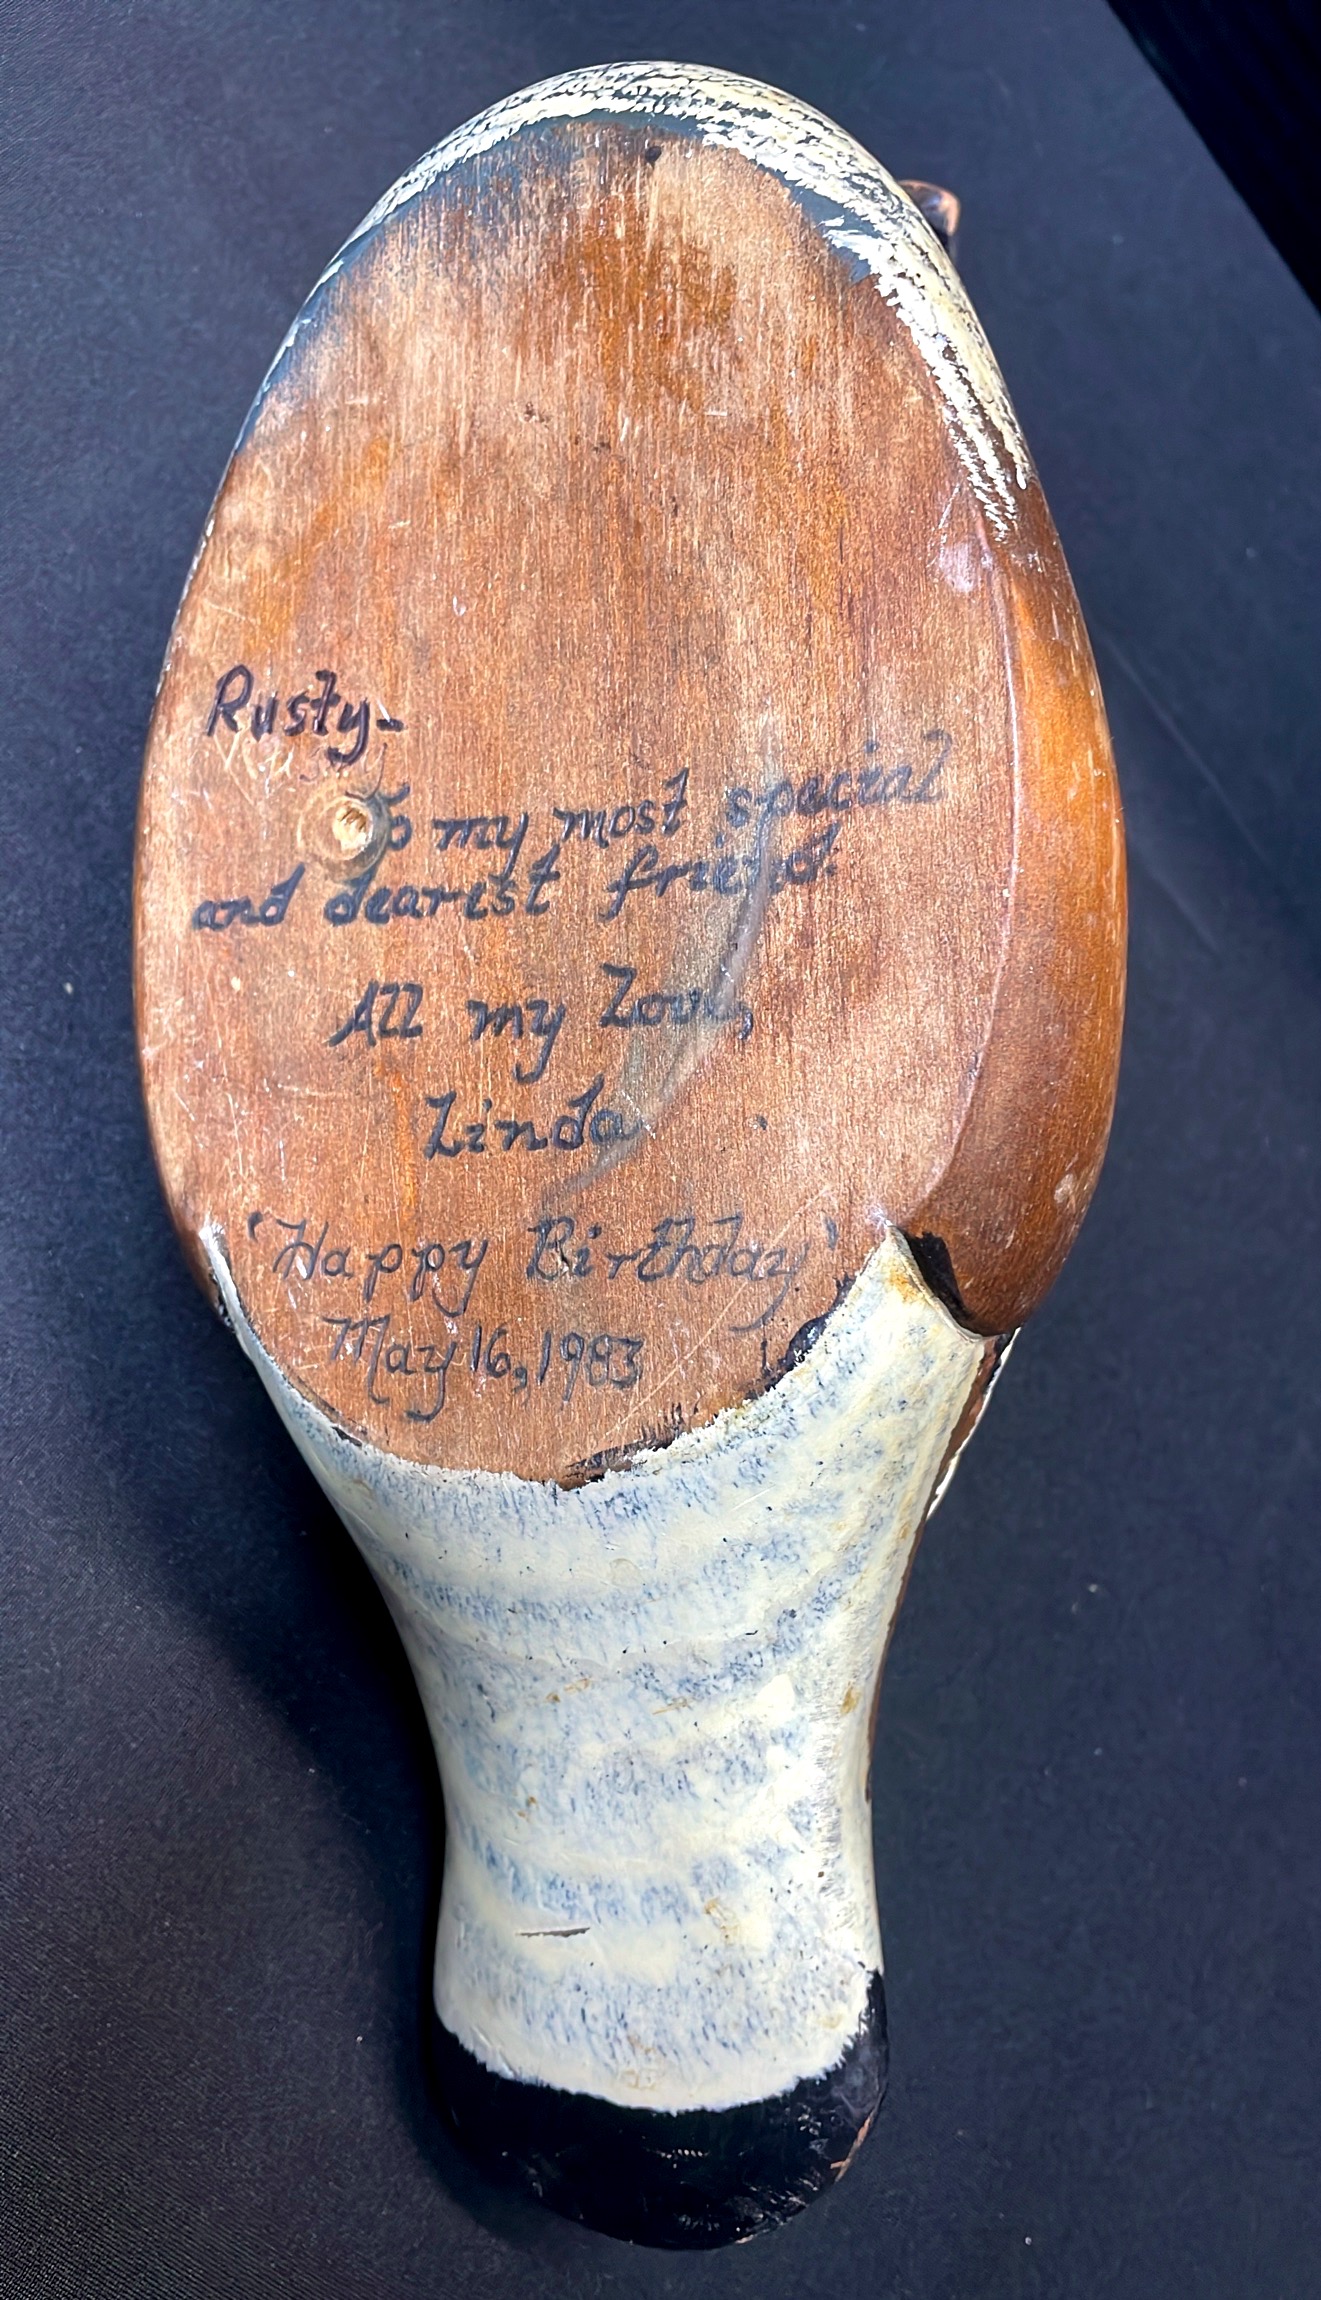 Rusty-
To my most special
and dearest friend.
All my Love,
Linda
'Happy Birthday'
May 16, 1983